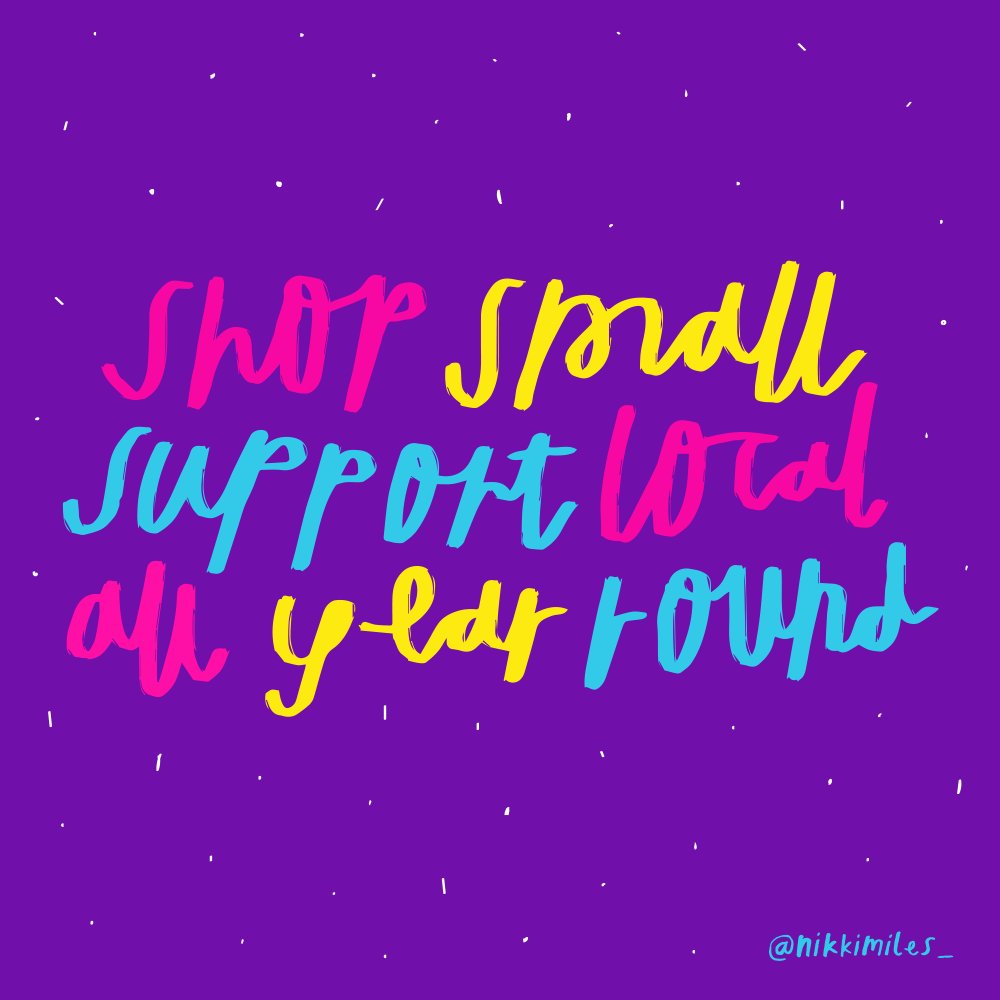 shop small
support local
all year round
@nikkimiles_